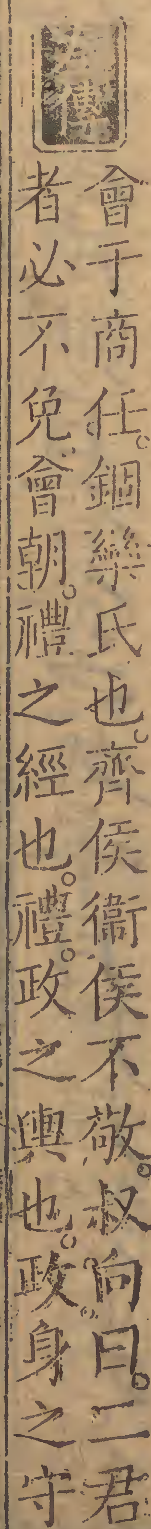 左傳
會于商任。錮欒氏也。齊侯衞侯不敬。叔向曰。二君
者必不免。會朝。禮之經也。禮。政之輿也。政。身之守